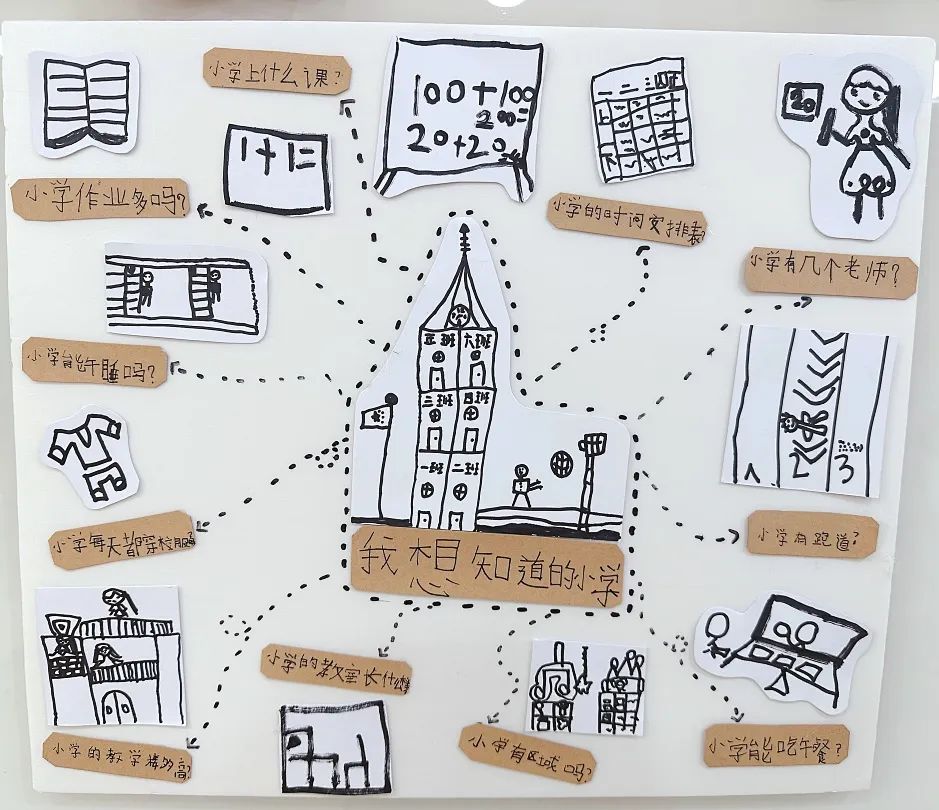 小学上什么课?
100+100
200=
20+20
一 二 三 四 五
20
1+1=
小学作业多吗?
小学的时间安排表?
小学有几个老师?
五班 六班
三班 四班
一班 二班
小学能午睡吗?
1 2 3
小学每天都穿校服吗?
小学有跑道?
我想知道的小学
小学的教室长什么样
小学的教学楼多高?
小学有区域吗?
小学能吃午餐?